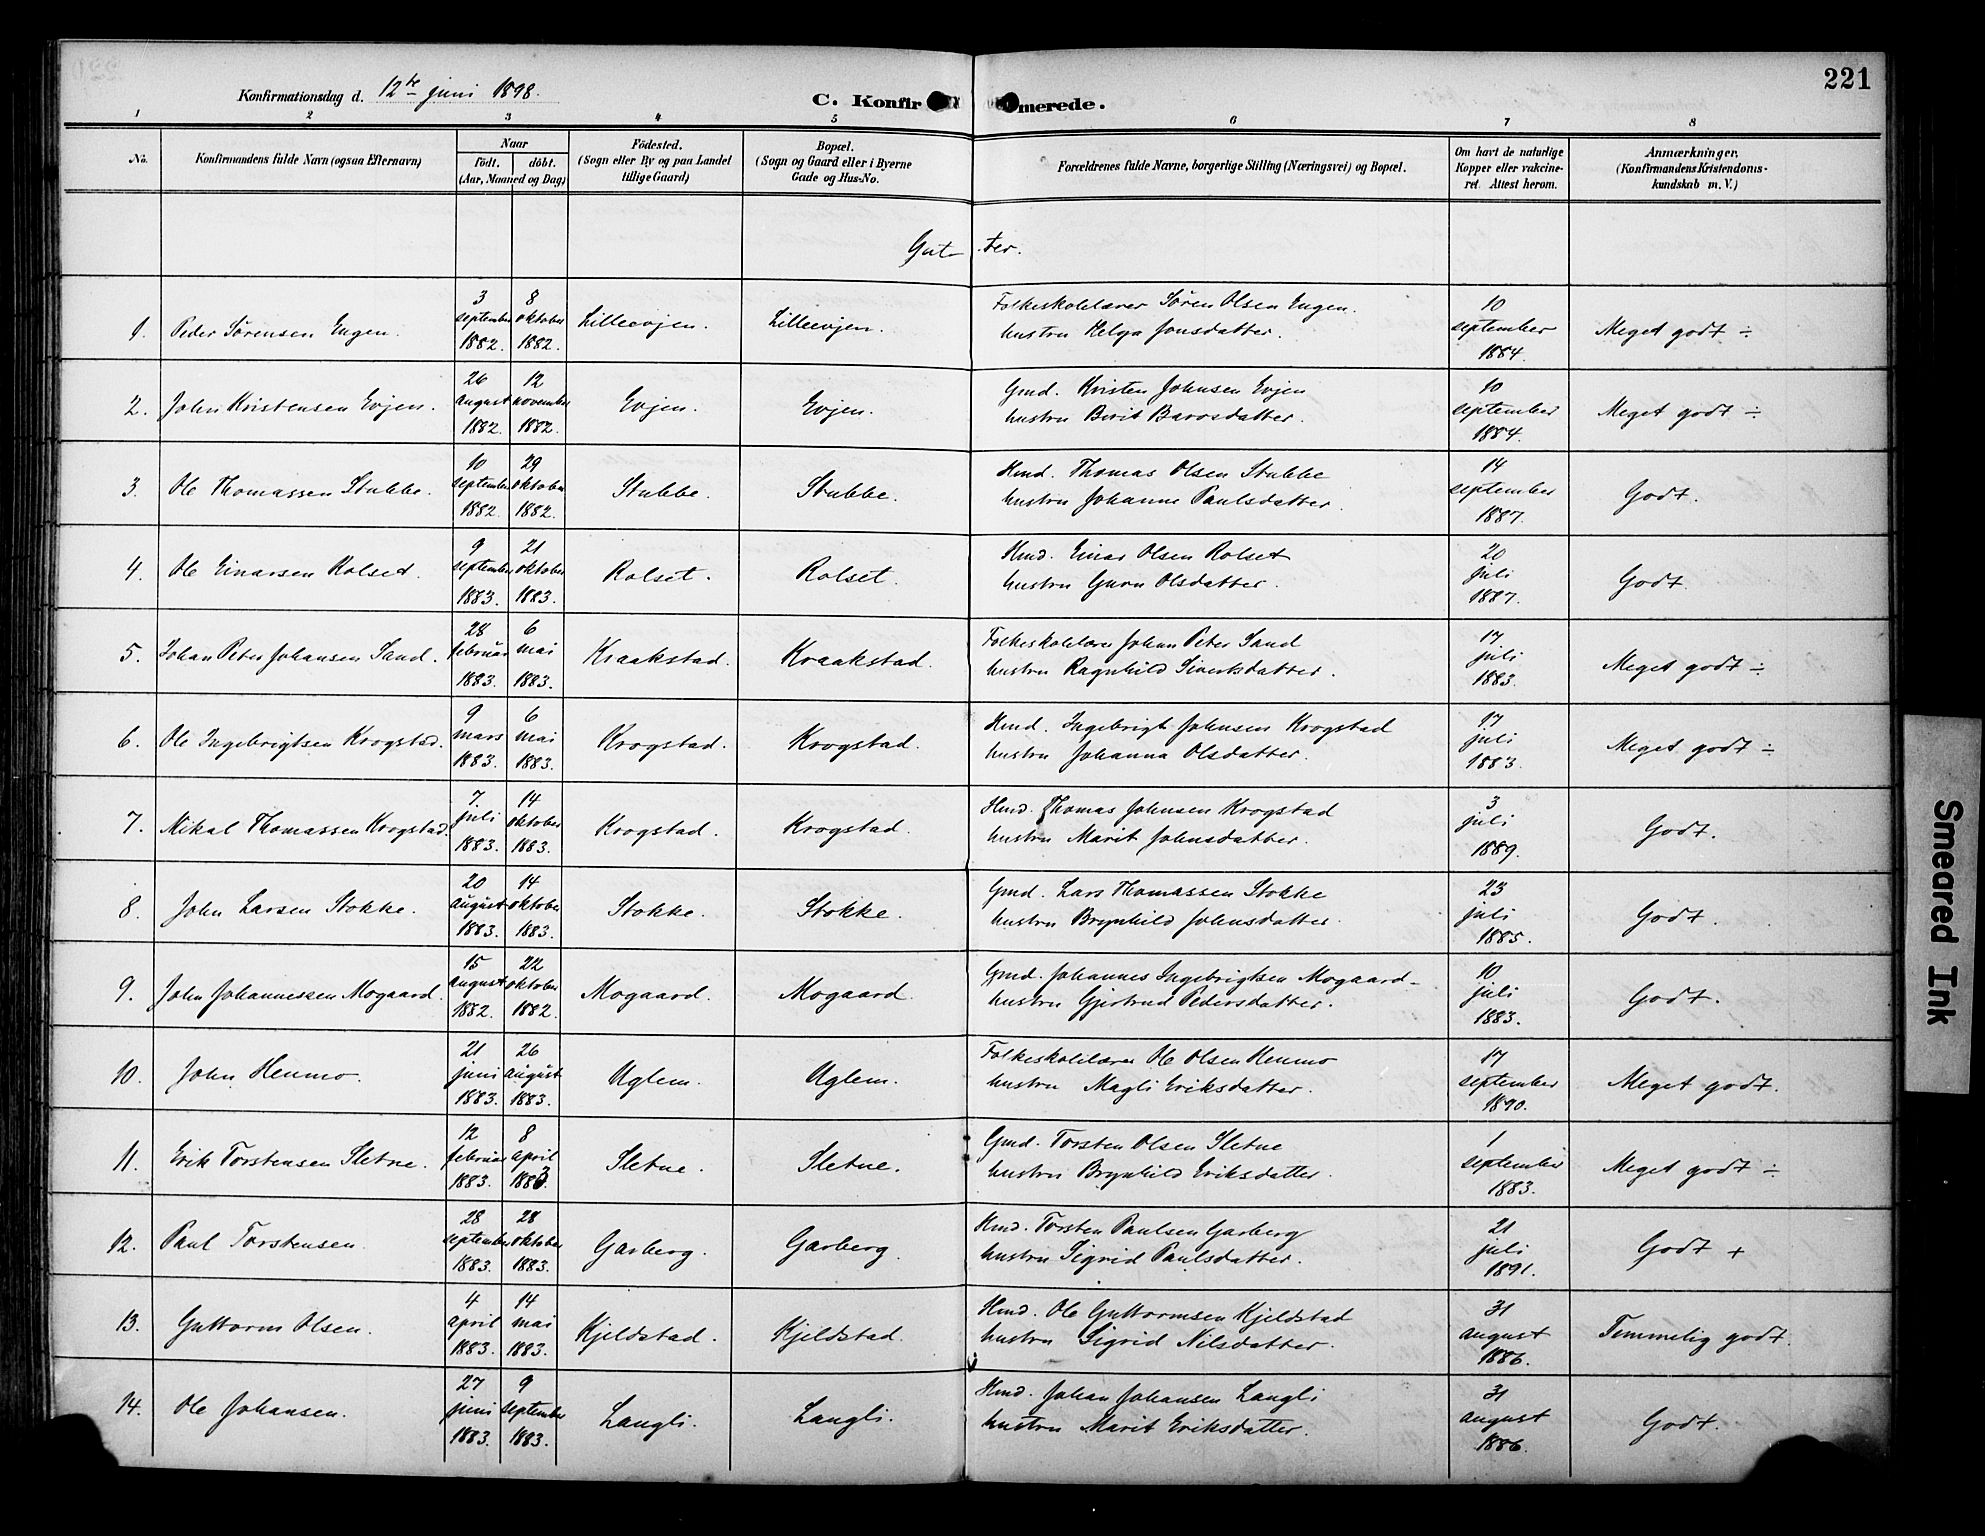 221
Konfirmationsdag d. 12te juni 1898.
C. Konfirmerede.
1 2 3 4 5 6 7 8
No. | Konfirmandens fulde Navn (ogsaa Efternavn) | Naar født. døbt. (Aar, Maaned og Dag) | Fødested. (Sogn eller By og paa Landet tillige Gaard) | Bopæl. (Sogn og Gaard eller i Byerne Gade og Hus-No. | Forældrenes fulde Navne, borgerlige Stilling (Næringsvei) og Bopæl. | Om havt de naturlige Kopper eller vakcineret. Attest herom. | Anmærkninger. (Konfirmandens Kristendomskundskab m. V.)
Gutter.
1. Peder Sørensen Engen. 3 september 1882. 8 oktober 1882. Lilleevjen. Lilleevjen. Folkeskolelærer Søren Olsen Engen. hustru Helga Jonsdatter. 10 september 1884. Meget godt ÷
2. John Kristensen Evjen. 26 august 1882. 12 november 1882. Evjen. Evjen. Gmd. Kristen Johnsen Evjen hustru Berit Barosdatter. 10 september 1884. Meget godt ÷
3. Ole Thomassen Stubbe. 10 september 1882. 29 oktober 1882. Stubbe. Stubbe. Hmd. Thomas Olsen Stubbe hustru Johanne Paulsdatter. 14 september 1887. Godt.
4. Ole Einarsen Rolset. 9 september 1883. 21 oktober 1883. Rolset. Rolset. Hmd. Einar Olsen Rolset hustru Guru Olsdatter. 20 juli 1887. Godt.
5. Johan Peter Johansen Sand. 28 februar 1883. 6 mai 1883. Kraakstad. Kraakstad. Folkeskolelærer Johan Peter Sand hustru Ragnhild Sivertsdatter. 17 juli 1883. Meget godt ÷
6. Ole Ingebrigtsen Krogstad. 9 mars 1883. 6 mai 1883. Krogstad. Krogstad. Hmd. Ingebrigt Johnsen Krogstad hustru Johanna Olsdatter. 17 juli 1883. Meget godt ÷
7. Mikal Thomassen Krogstad. 7. juli 1883. 14 oktober 1883. Krogstad. Krogstad. Hmd. Thomas Johnsen Krogstad hustru Marit Johnsdatter. 3 juli 1889. Godt.
8. John Larsen Stokke. 20 august 1883. 14 oktober 1883. Stokke. Stokke. Gmd. Lars Thomassen Stokke hustru Brynhild Johnsdatter. 23 juli 1885. Godt.
9. John Johannessen Mogaard. 15 august 1882. 22 oktober 1882. Mogaard. Mogaard. Gmd. Johannes Ingebrigtsen Mogaard hustru Gjertrud Pedersdatter. 10 juli 1883. Godt.
10. John Henmo. 21 juni 1883. 26 august 1883. Uglem. Uglem. Folkeskolelærer Ole Olsen Henmo hustru Magli Eriksdatter. 17 september 1890. Meget godt.
11. Erik Torstensen Sletne. 12 februar 1883. 8 april 1883. Sletne. Sletne. Gmd. Torsten Olsen Sletne hustru Brynhild Eriksdatter. 1 september 1883. Meget godt ÷
12. Paul Torstensen. 28 september 1883. 28 oktober 1883. Garberg. Garberg. Hmd. Torsten Paulsen Garberg hustru Sigrid Paulsdatter. 21 juli 1891. Godt +
13. Guttorm Olsen. 4 april 1883. 14 mai 1883. Kjeldstad. Kjeldstad. Hmd. Ole Guttormsen Kjeldstad hustru Sigrid Nilsdatter. 31 august 1886. Temmelig godt.
14. Ole Johansen. 27 juni 1883. 9 september 1883. Langli. Langli. Hmd. Johan Johansen Langli hustru Marit Eriksdatter. 31 august 1886. Godt.
Smeared Ink